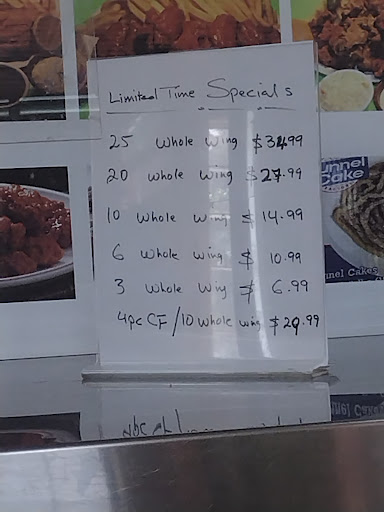 Limited Time Specials
25 whole wing $34.99
20 whole wing $27.99
10 whole wing $14.99
6 whole wing $10.99
3 whole wing $6.99
4pc CF/10 whole wing $29.99
unnel
Cake
nnel Cakes